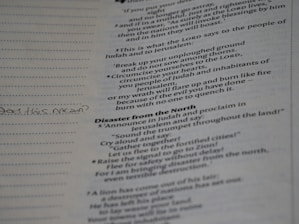 'If you put your detestable
sight
and no longer go astray,
and if in a truthful, just and righteous way
you swear, 'As surely as the LORD lives,'
then the nations will invoke blessings by him
and in him they will boast."
This is what the LORD says to the people of
Judah and to Jerusalem:
"Break up your unploughed ground
and do not sow among thorns.
Circumcise yourselves to the LORD,
circumcise your hearts,
you people of Judah and inhabitants of
Jerusalem,
or my wrath will flare up and burn like fire
because of the evil you have done –
burn with no one to quench it.
Disaster from the North
"Announce in Judah and proclaim in
Jerusalem and say:
"Sound the trumpet throughout the land!"
Cry aloud and say:
"Gather together!
Let us flee to the fortified cities!"
Raise the signal to go to Zion!
Flee for safety without delay!
For I am bringing disaster from the north,
even terrible destruction."
A lion has come out of his lair;
a destroyer of nations has set out.
He has left his place
to lay waste your land.
Your towns will lie in ruins
without inhabitant.
does this mean?